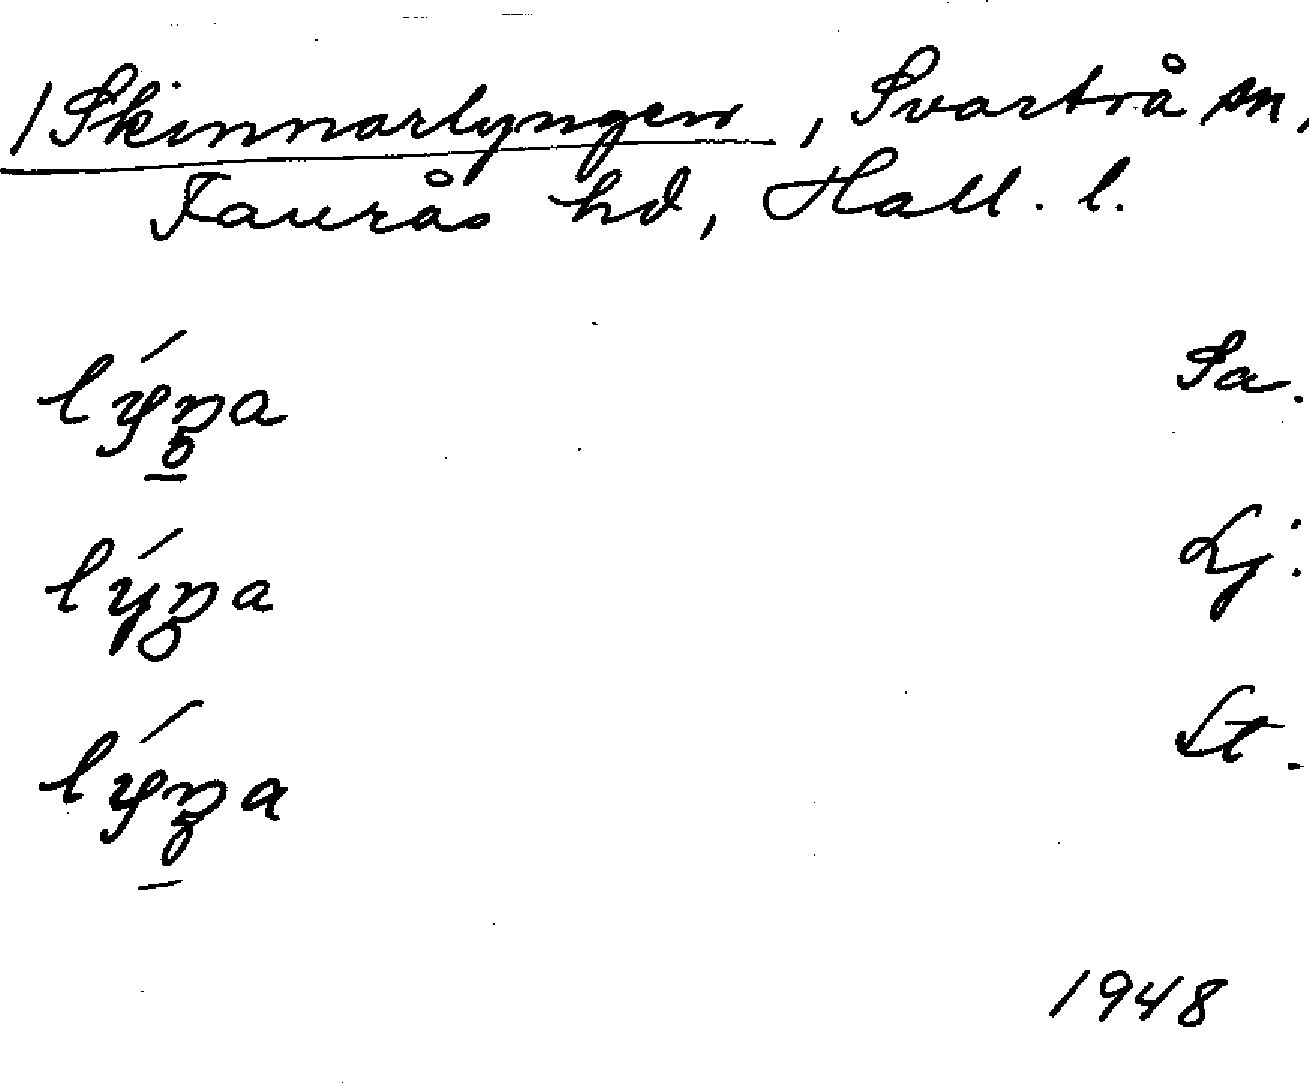 /Skinnarlyngen, Svartrå sn,
Faurås hd, Hall. l.
lýŋa Sa.
lýŋa Lj.
lýŋa St.
1948